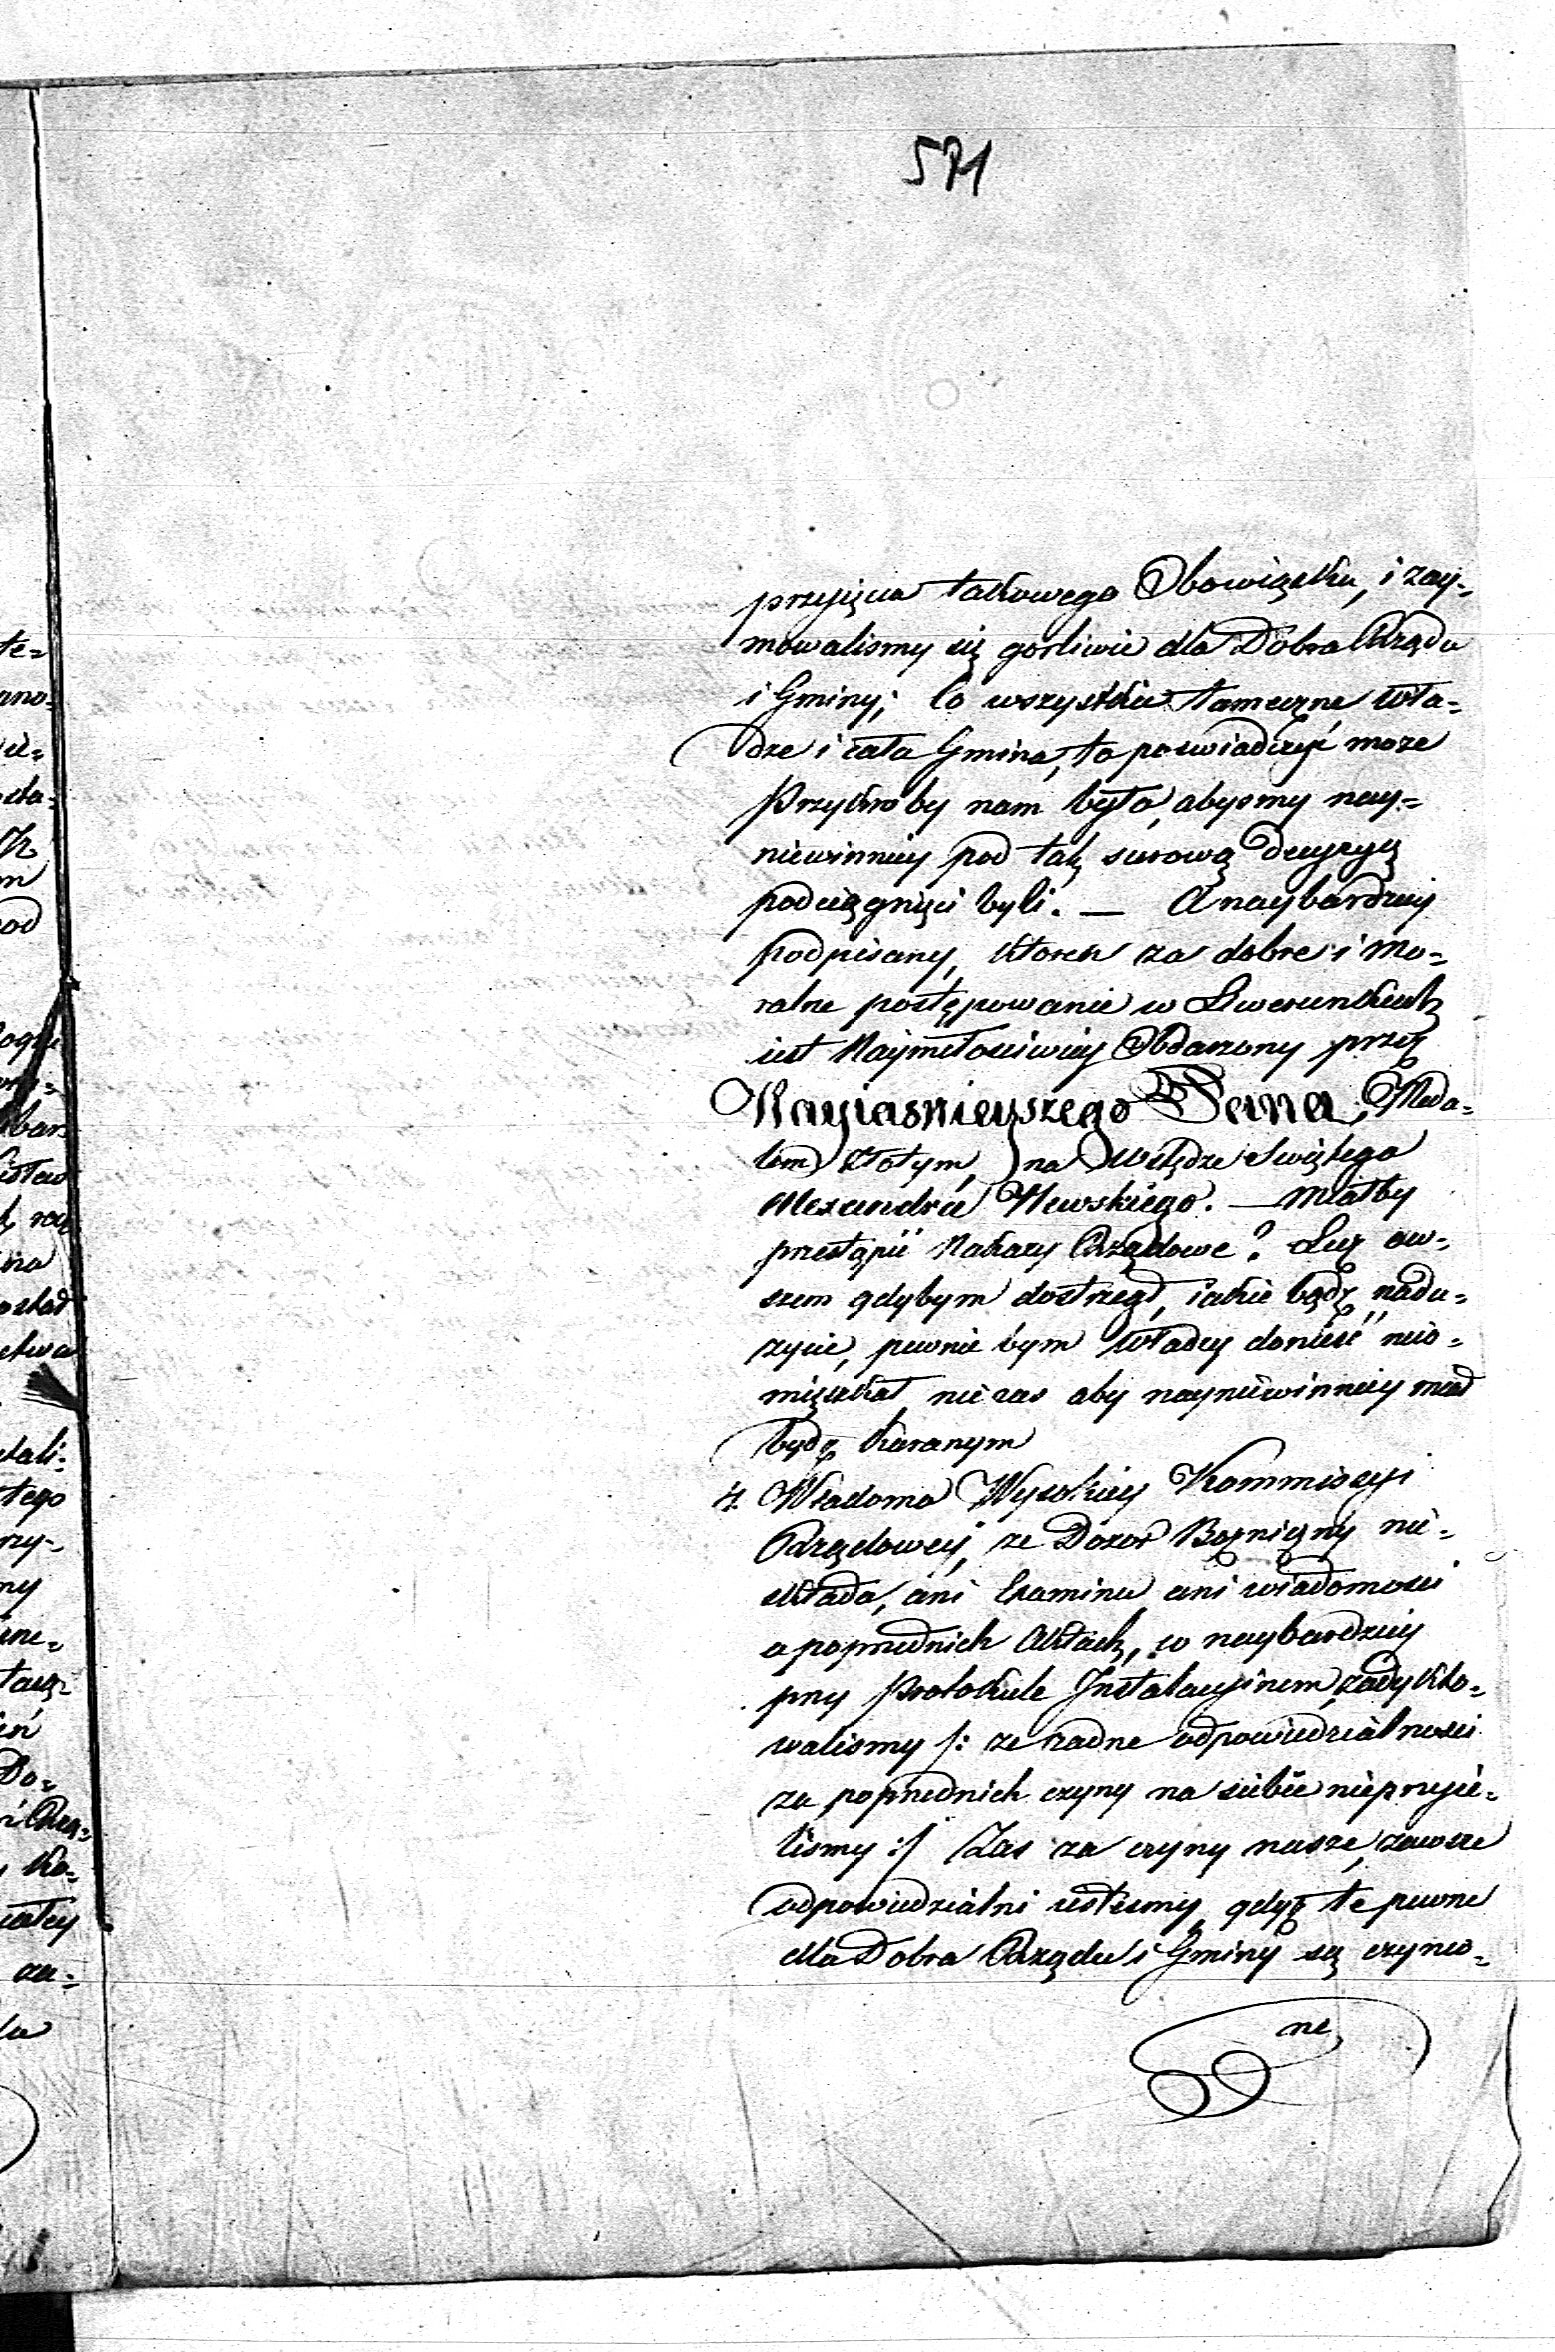 571
przyięcia takowego Obowiązku, i zay-
mowalismy się gorliwie dla Dobra Rządu
i Gminy; Co wszystkie tameczne Wła-
dze i cała Gmina, to poswiadczyć może
Przykro by nam było, abysmy nay-
niewinniey pod tak surową decyzyą
podciągnięci byli. — A naybardziey
podpisany, ktoren za dobre i mo-
ralne postępowanie w Liwerunkach
iest Naymiłosciwiey Obdarzony przez
Nayiasnieyszego Pana, Meda-
lem Złotym, na Wstędze Swiętego
Alexandra Newskiego. — miałby
przestąpić Nakazy Rządowe? Lecz ow-
szem gdybym dostrzegł, iakie bądz nadu-
życie, pewnie bym Władzy donieść nieo-
mięszkał, nie zas aby nayniewinniey miał
bydz karanym
4. Wiadomo Wysokiey Kommissyi
Rządowey, ze Dozor Bozniczny nie-
składa, ani Examinu ani wiadomosci
o poprzednich Aktach, co naybardziey
przy Protokule Instalacyinem zadykto-
walismy /: ze żadne odpowiedzialnosci
za poprzednich czyny na siebie nieprzyie-
lismy :/ Zas za czyny nasze, zawsze
odpowiedzialni iestesmy, gdyż te pewne
dla Dobra Rządu i Gminy są czynio-
ne